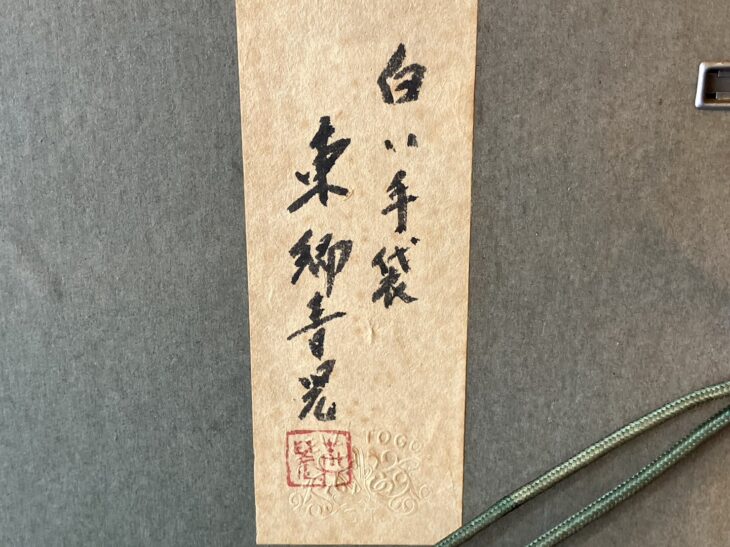 白い手袋
東郷青児
TOGO